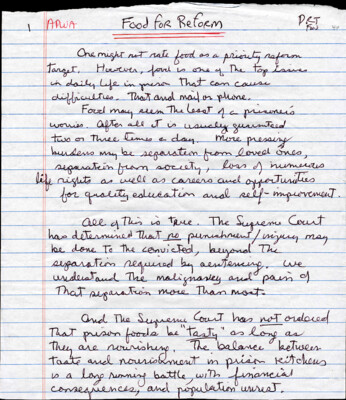 1 APWA Food for Reform
One might not rate food as a priority reform
target. However, food is one of the top issues
in daily life in prison that can cause
difficulties. That and mail or phone.
Food may seem the least of a prisoner's
worries. After all it is usually guaranteed
two or three times a day. More pressing
burdens may be separation from loved ones,
separation from society, loss of numerous
life rights as well as careers and opportunities
for quality education and self-improvement.
All of this is true. The Supreme Court
has determined that no punishment/injury may
be done to the convicted, beyond the
separation required by sentencing. We
understand the malignancy and pain of
that separation more than most.
And the Supreme Court has not ordered
that prison foods be "tasty" as long as
they are nourishing. The balance between
taste and nourishment in prison kitchens
is a long running battle, with financial
consequences, and population unrest.